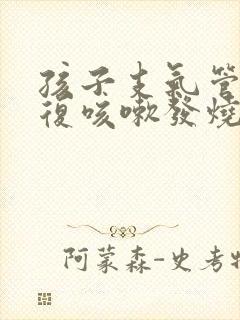 孩子支氣管
復咳嗽發燒
阿蒙森-史考特